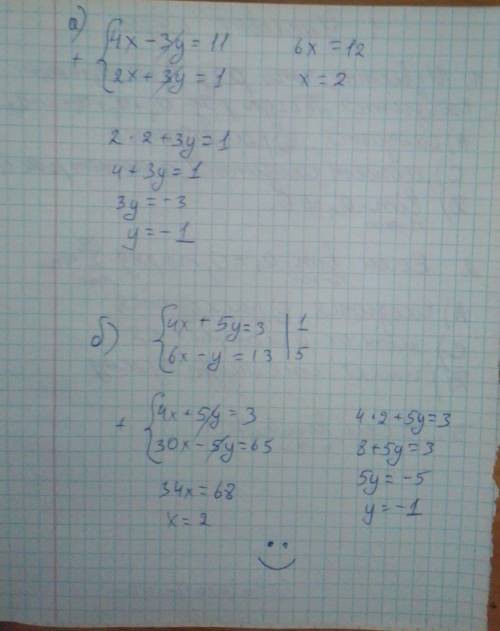 а)
4x - 3y = 11
+ 2x + 3y = 1
6x = 12
x = 2
2 · 2 + 3y = 1
4 + 3y = 1
3y = -3
y = -1
б)
4x + 5y = 3 | 1
6x - y = 13 | 5
+ 4x + 5y = 3
30x - 5y = 65
34x = 68
x = 2
4 · 2 + 5y = 3
8 + 5y = 3
5y = -5
y = -1